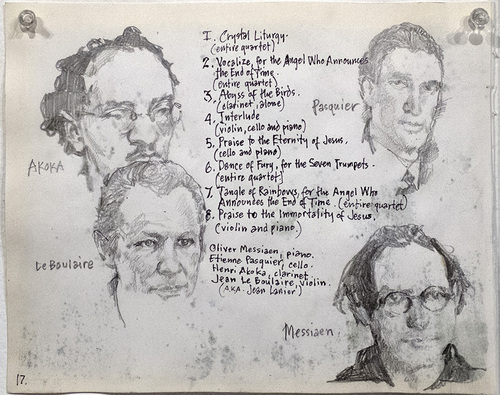 1. Crystal Liturgy.
(entire quartet)
2. Vocalize, for the Angel Who Announces
the End of Time.
(entire quartet)
3. Abyss of the Birds.
(clarinet, alone)
4. Interlude
(violin, cello and piano)
5. Praise to the Eternity of Jesus.
(cello and piano)
6. Dance of Fury, for the Seven Trumpets.
(entire quartet)
7. Tangle of Rainbows, for the Angel Who
Announces the End of Time. (entire quartet)
8. Praise to the Immortality of Jesus.
(violin and piano)
Oliver Messiaen, piano.
Etienne Pasquier, cello.
Henri Akoka, clarinet.
Jean Le Boulaire, violin.
(A.K.A. Jean Lanier)
Akoka
Pasquier
Le Boulaire
Messiaen
17.